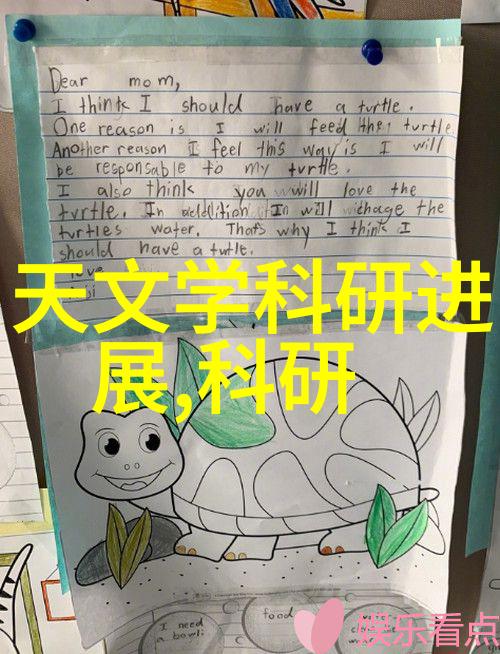 Dear mom,
I think I should have a turtle.
One reason is I will feed the turtle.
Another reason I feel this way is I will
be responsable to my turtle.
I also think you will love the
turtle. In addition I will chage the
turtles water. That's why I think I
should have a turtle.
love
天文学科研进
展,科研
I need
a bowl
food
娱乐看点